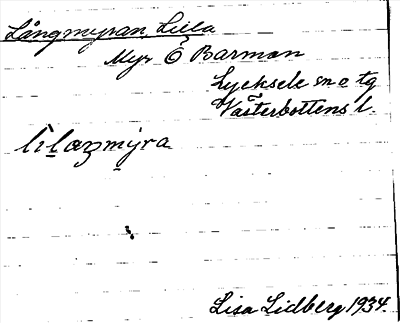 Långmyran, Lilla
Myr Ö Barman
Lycksele sn o tg
Västerbottens l.
Lisa Lidberg 1934.